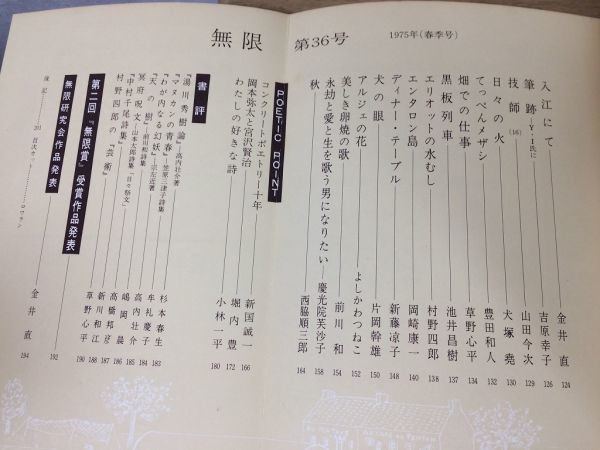 無限 第36号 1975年(春季号)
入江にて 金井直 124
筆跡―Y・I氏に 吉原幸子 126
技師(16) 山田今次 129
日々の火 犬塚堯 130
てっぺんメザシ 豊田和人 132
畑での仕事 草野心平 134
黒板列車 池井昌樹 137
エリオットの水むし 村野四郎 138
エンタロン島 岡崎康一 140
ディナー・テーブル 新藤凉子 148
犬の眼 片岡幹雄 150
アルジェの花 よしかわつねこ 152
美しき卵焼の歌 前川和 154
永劫と愛と生を歌う男になりたい 慶光院芙沙子 158
秋 西脇順三郎 164
POETIC POINT
コンクリートポエトリー十年 新国誠一 166
岡本弥太と宮沢賢治 堀内豊 172
わたしの好きな詩 小林一平 180
書評
『湯川秀樹論』高内壮介著 杉本春生 183
『マヌカンの青春』笠原三津子詩集 牟礼慶子 184
『わが内なる幻妖』宗左近著 高内壮介 185
『天の樹』前川和詩集 嶋岡晨 186
『冥府呪文』山本太郎詩集「日々祭文」 高橋邦彦 187
『中村千尾詩集』 新川和江 188
村野四郎の『芸術』 草野心平 190
第二回『無限賞』受賞作品発表
無限研究会作品発表 192
金井直 194
後記 201 目次カット